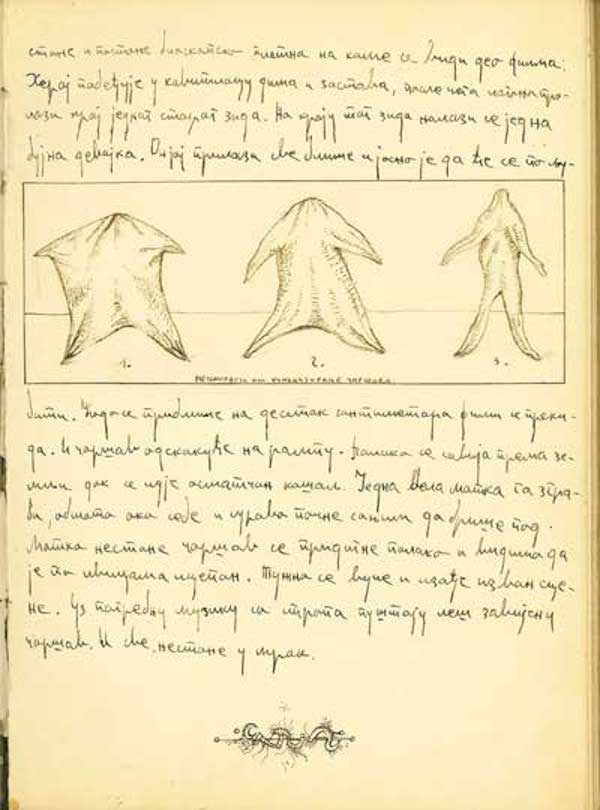 стане и постане биоскопско платно на коме се види део филма:
Херој побеђује у ковитлацу дима и застава, после чега про-
лази крај једног старог зида. На крају тог зида налази се једна
бујна девојка. Он јој прилази све ближе и јасно је да ће се пољу-
1. 2. 3.
бити. Када се приближе на десетак сантиметара филм се преки-
да. И чаршав одскакуће на рампу. Полако се савија према зе-
мљи док се чује астматичан кашаљ. Једна бела матка га згра-
би, обмота око себе и управо почне са њим да брише под.
Матка нестане чаршав се придигне полако и видимо да
је по ивицама исцепан. Тужно се вуче и изађе изван сце-
не. Уз погребну музику са строп пуштају леш завијен у
чаршав. И све нестане у мрак.